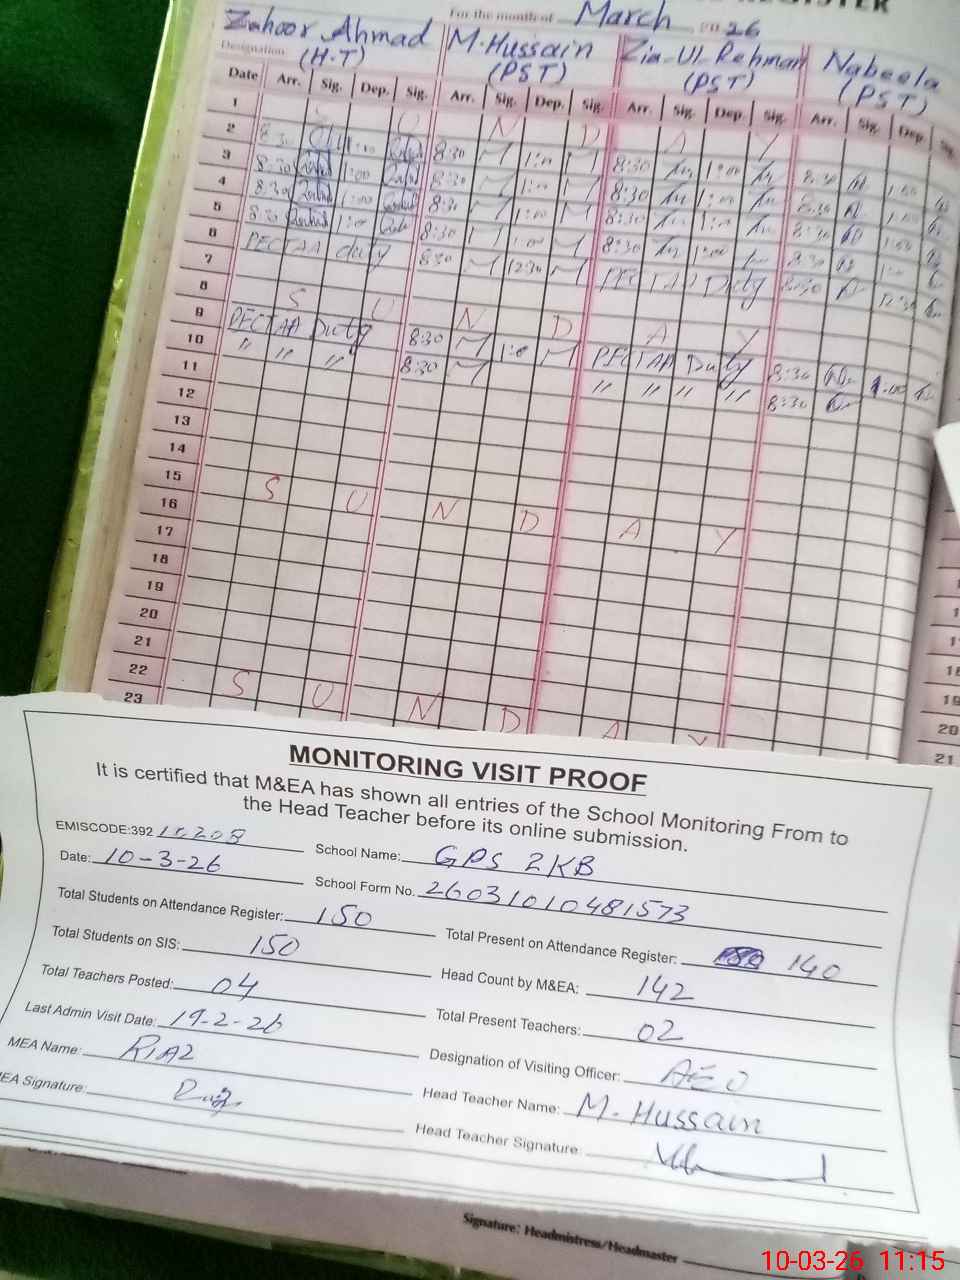 REGISTER
For the month of March 2026
Zahoor Ahmad M. Hussain Zia-Ul-Rehman Nabeela
Designation (H.T) (PST) (PST) (PST)
Date Arr. Sig. Dep. Sig. Arr. Sig. Dep. Sig. Arr. Sig. Dep. Sig. Arr. Sig. Dep. Sig.
1 S U N D A Y
2 8:30 1:00 8:30 1:00 8:30 1:00 8:30 1:00
3 8:30 1:00 8:30 1:00 8:30 1:00 8:30 1:00
4 8:30 1:00 8:30 1:00 8:30 1:00 8:30 1:00
5 8:30 1:00 8:30 1:00 8:30 1:00 8:30 1:00
6 PECTAA duty 8:30 12:30 PECTAA Duty 8:30 12:30
7
8 S U N D A Y
9 PECTAA Duty 8:30 1:00 PECTAA Duty 8:30 1:00
10 " " " 8:30 " " " " 8:30
11
12
13
14
15 S U N D A Y
16
17
18
19
20
21
22 S U N D A Y
23
18
19
20
21
MONITORING VISIT PROOF
It is certified that M&EA has shown all entries of the School Monitoring From to
the Head Teacher before its online submission.
EMISCODE:392 10208 School Name: GPS 2KB
Date: 10-3-26 School Form No. 26031010481573
Total Students on Attendance Register: 150 Total Present on Attendance Register: 140
Total Students on SIS: 150 Head Count by M&EA: 142
Total Teachers Posted: 04 Total Present Teachers: 02
Last Admin Visit Date: 19-2-26 Designation of Visiting Officer: AEO
MEA Name: RIAZ Head Teacher Name: M. Hussain
MEA Signature: Riaz Head Teacher Signature:
Signature: Headmistress/Headmaster
10-03-26 11:15